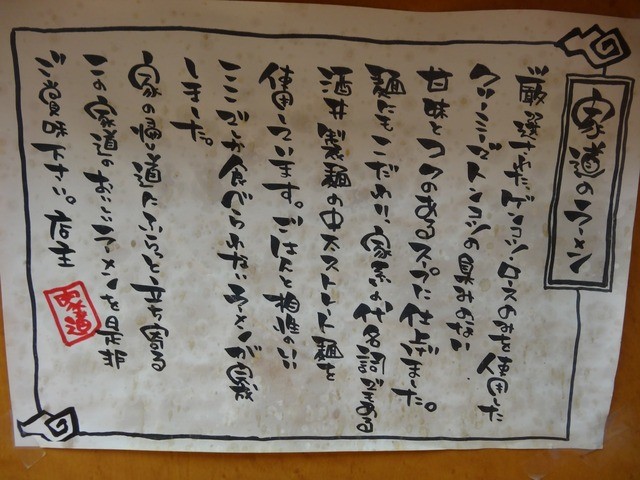 家道のラーメン
厳選されたゲンコツ・ロースのみ使用した
クリーミーでトンコツの臭みのない
甘味とコクのあるスープに仕上げました。
麺にもこだわり、家系の代名詞である
酒井製麺の中太ストレート麺を
使用しています。ごはんと相性のいい
ここでしか食べられないラーメンが
しました。
家の帰り道にふらっと立ち寄る
この家道のおいしいラーメンを是非
ご賞味下さい。店主